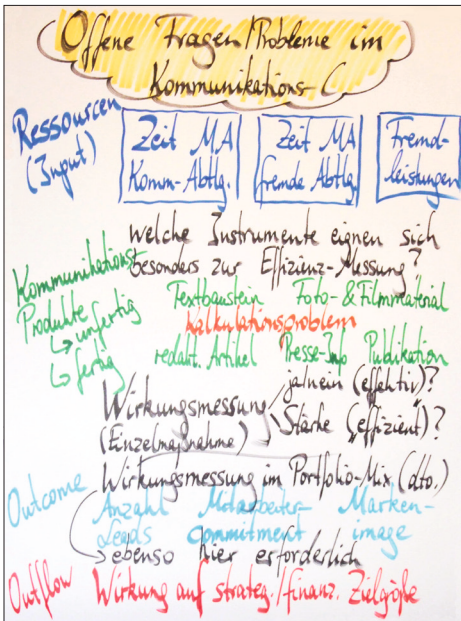 Offene Fragen/Probleme im
Kommunikations C
Ressourcen
(Input)
Zeit MA
Komm-Abtlg.
Zeit MA
fremde Abtlg.
Fremd-
leistungen
welche Instrumente eignen sich
besonders zur Effizienz-Messung?
Kommunikations
Produkte
↳ unfertig
↳ fertig
Textbaustein Foto- & Filmmaterial
Kalkulationsproblem
redakt. Artikel Presse-Info Publikation
Wirkungsmessung
(Einzelmaßnahme)
ja/nein (effektiv")?
Stärke („effizient")?
Wirkungsmessung im Portfolio-Mix (dto.)
Outcome
Anzahl Mitarbeiter- Marken-
Leads commitment image
→ ebenso hier erforderlich
Outflow Wirkung auf strateg./finanz. Zielgröße